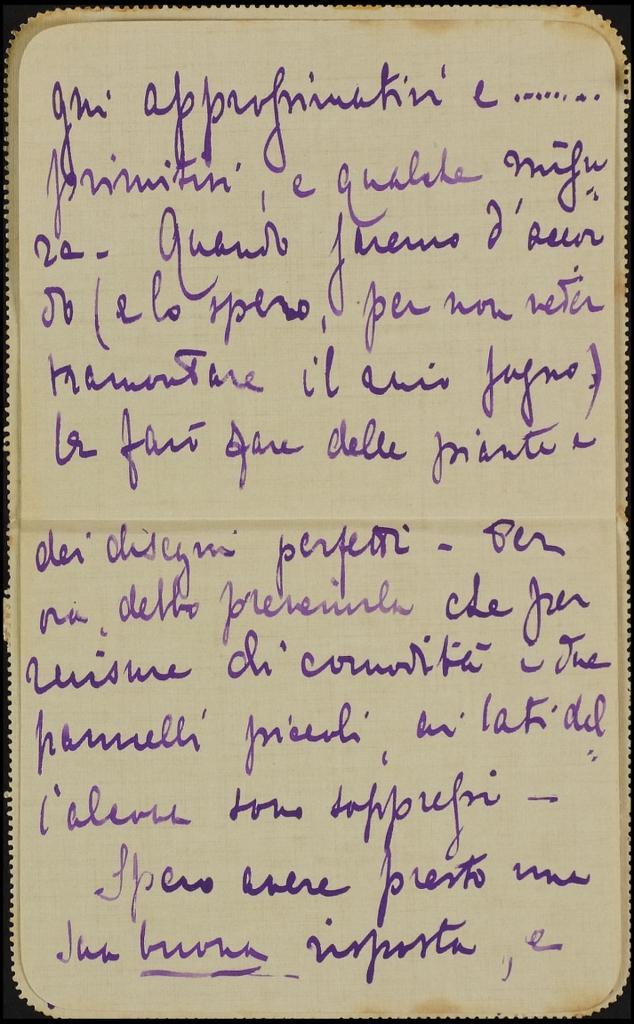 gni approssimativi e ........
primitivi, e qualche misu„
ra - Quando saremo d'accor
do (e lo spero, per non veder
tramontare il mio sogno)
le farò fare delle piante e
dei disegni perfetti - Per
ora, debbo prevenirla che per
ragione di comodità i due
pannelli piccoli, ai lati del„
l'alcova sono soppressi -
Spero avere presto una
sua buona risposta, e